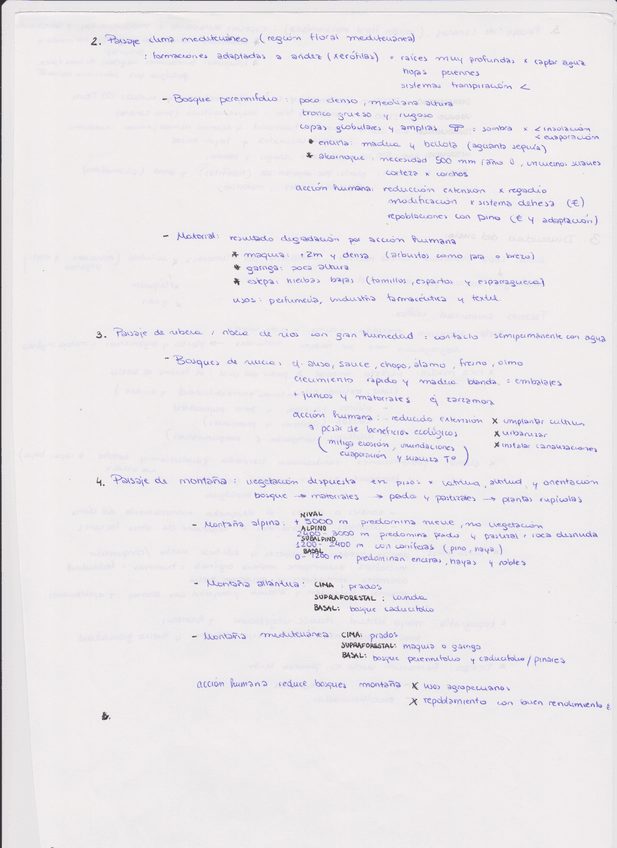 2. Paisaje clima mediterráneo (región floral mediterránea)
: formaciones adaptadas a aridez (xerófilas) = raíces muy profundas x captar agua
hojas perennes
sistemas transpiración <
- Bosque perennifolio: poco denso, mediana altura
tronco grueso y rugoso
copas globulares y amplias : sombra x < insolación
< evaporación
* encina: madera y bellota (aguanta sequía)
* alcornoque: necesidad 500 mm/año, inviernos suaves
corteza x corchos
acción humana: reducción extensión x regadío
modificación x sistema dehesa (€)
repoblaciones con pino (€ y adaptación)
- Matorral: resultado degradación por acción humana
* maquia: +2m y densa (arbustos como jara o brezo)
* garriga: poca altura
* estepa: hierbas bajas (tomillos, espartos y esparragueras)
usos: perfumería, industria farmacéutica y textil.
3. Paisaje de ribera: ribera de ríos con gran humedad: contacto semipermanente con agua
- Bosques de ribera: ej. aliso, sauce, chopo, álamo, fresno, olmo
crecimiento rápido y madera blanda = embalajes
+ juncos y matorrales ej zarzamora
acción humana: reducido extensión x implantar cultivos
a pesar de beneficios ecológicos x urbanizar
(mitiga erosión, inundaciones x instalar canalizaciones
evaporación y suaviza Tº)
4. Paisaje de montaña: vegetación dispuesta en pisos x latitud, altitud y orientación
bosque → matorrales → prado y pastizales → plantas rupícolas
NIVAL
- Montaña alpina: + 3000 m predomina nieve, no vegetación
ALPINO
2400 - 3000 m predomina prado y pastizal + roca desnuda
SUBALPINO
1200 - 2400 m con coníferas (pino, haya)
BASAL
0 - 1200 m predominan encinas, hayas y robles
- Montaña atlántica: CIMA: prados
SUPRAFORESTAL: landa
BASAL: bosque caducifolio
- Montaña mediterránea: CIMA: prados
SUPRAFORESTAL: maquia o garriga
BASAL: bosque perennifolio y caducifolio/pinares
acción humana reduce bosques montaña x usos agropecuarios
x repoblamiento con buen rendimiento €